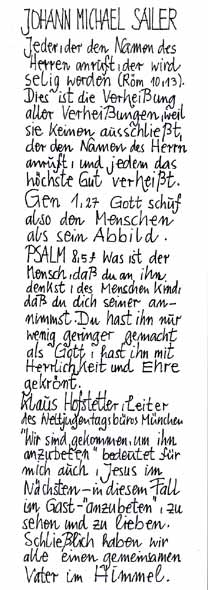 JOHANN MICHAEL SAILER
Jeder, der den Namen des
Herren anruft, der wird
selig werden (Röm 10,13).
Dies ist die Verheißung
aller Verheißungen, weil
sie keinen ausschließt,
der den Namen des Herrn
anruft, und jedem das
höchste Gut verheißt.
Gen 1,27 Gott schuf
also den Menschen
als sein Abbild.
PSALM 8,5f Was ist der
Mensch, daß du an ihn
denkst, des Menschen Kind,
daß du dich seiner an-
nimmst. Du hast ihn nur
wenig geringer gemacht
als Gott, hast ihn mit
Herrlichkeit und Ehre
gekrönt.
Klaus Hofstetter, Leiter
des Weltjugendtagsbüros München
"Wir sind gekommen, um ihn
anzubeten" bedeutet für
mich auch, Jesus im
Nächsten - in diesem Fall
im Gast - "anzubeten", zu
sehen und zu lieben.
Schließlich haben wir
alle einen gemeinsamen
Vater im Himmel.